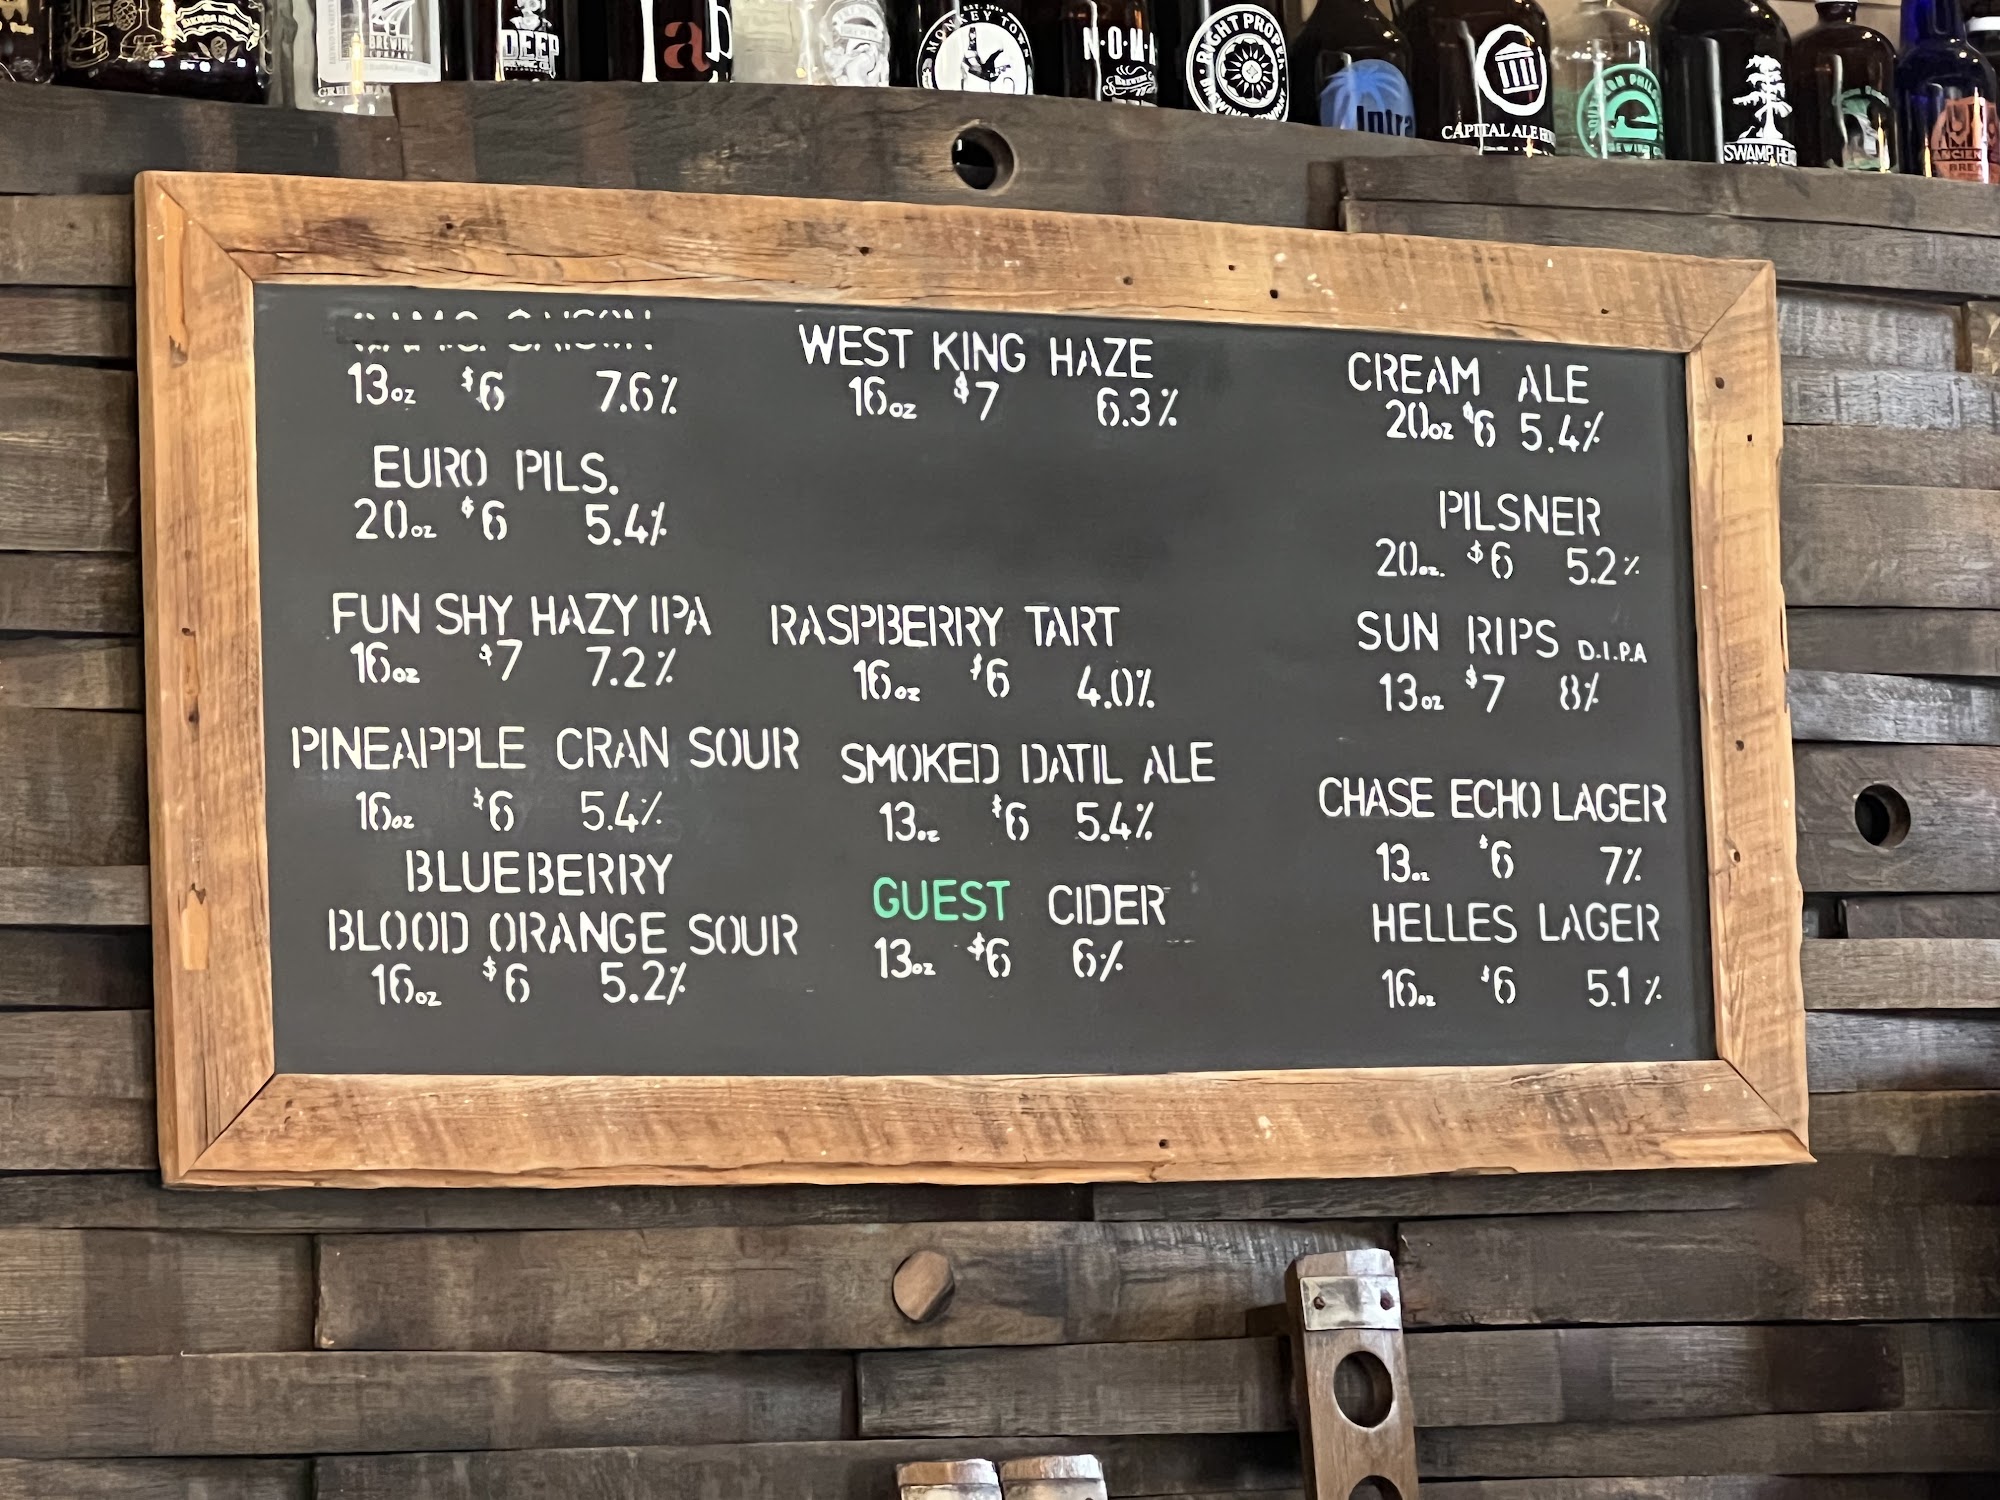 SIERRA NEVADA
BREWING
COMPANY
GREEN BAY
DEEP
BREWING CO.
ab
EST.
MONKEY TOWN
N.O.M.
BREWING
RIGHT PROPER
BREWING COMPANY
Intra
CAPITAL ALE
BREWING
SWAMP HEAD
ANCIENT
BREW
13oz $6 7.6%
EURO PILS.
20oz $6 5.4%
FUN SHY HAZY IPA
16oz $7 7.2%
PINEAPPLE CRAN SOUR
16oz $6 5.4%
BLUEBERRY
BLOOD ORANGE SOUR
16oz $6 5.2%
WEST KING HAZE
16oz $7 6.3%
RASPBERRY TART
16oz $6 4.0%
SMOKED DATIL ALE
13oz $6 5.4%
GUEST CIDER
13oz $6 6%
CREAM ALE
20oz $6 5.4%
PILSNER
20oz. $6 5.2%
SUN RIPS D.I.P.A
13oz $7 8%
CHASE ECHO LAGER
13oz $6 7%
HELLES LAGER
16oz $6 5.1%